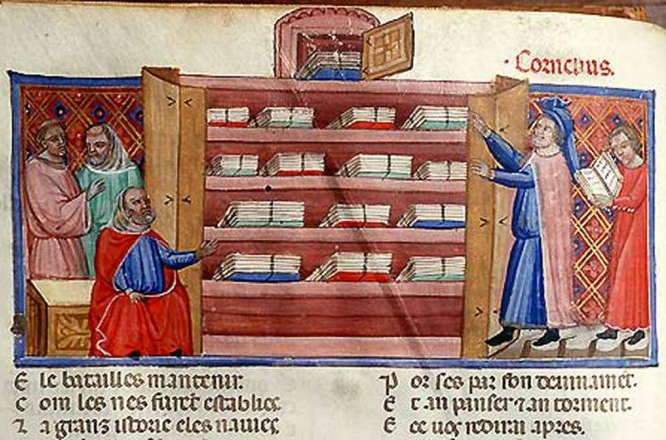 · Cornelius.
E le batailles mantenir.
C om les nes furēt establies.
⁊ a granz istorie eles nauies
P or ses par son deuinamēt.
E t an panser ⁊ an torment.
E ce uos redirai apres.